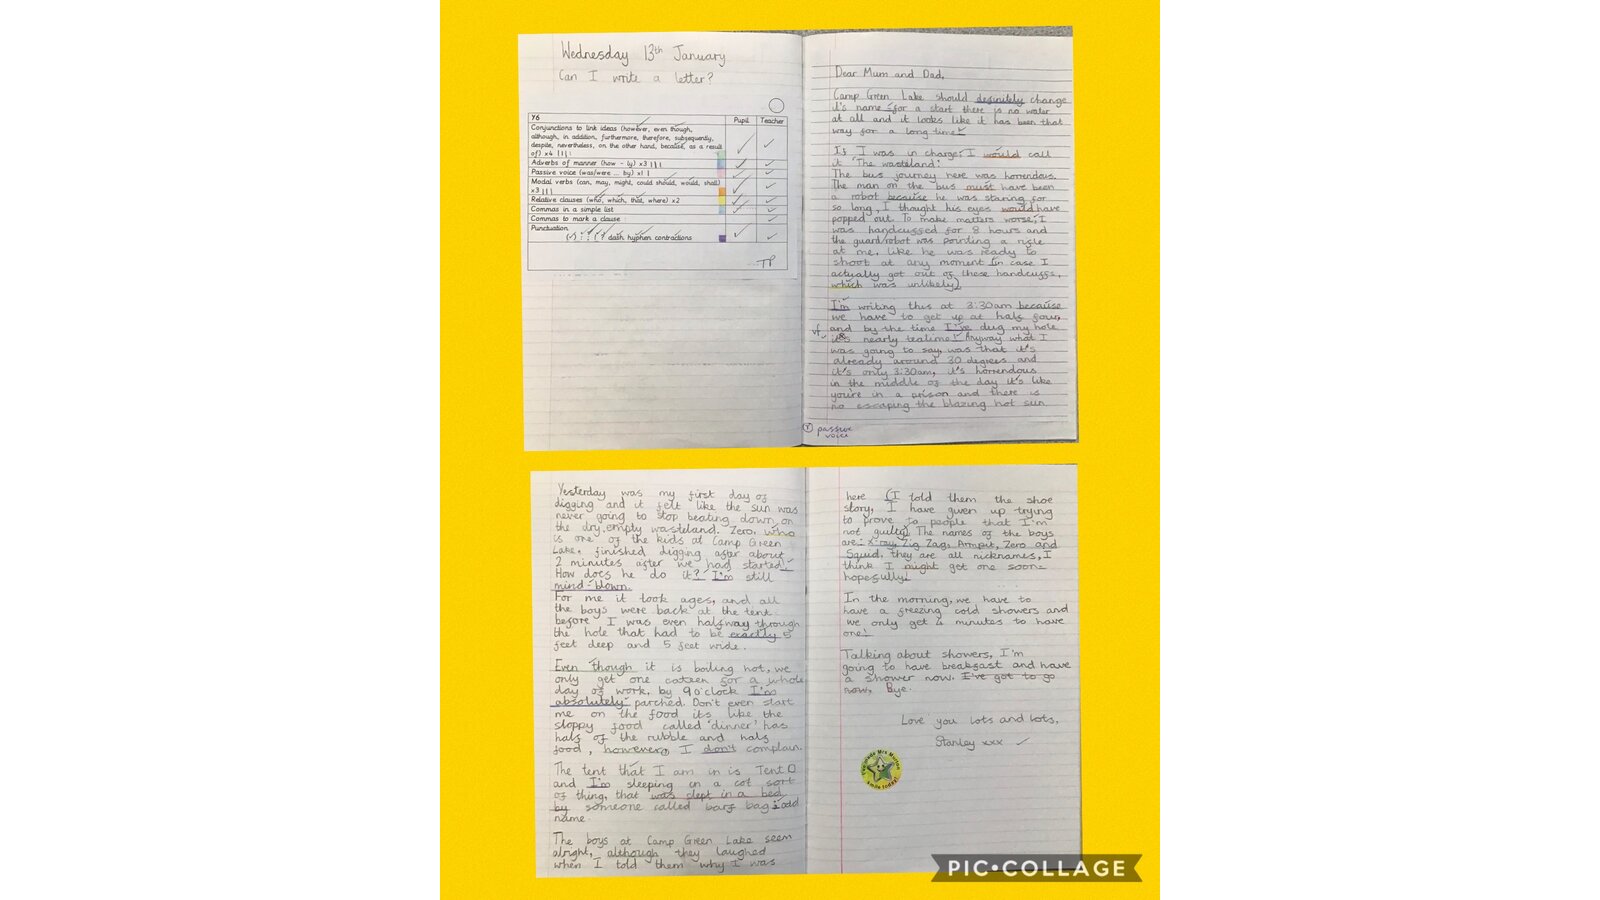 Wednesday 13th January
Can I write a letter?
Y6
Pupil
Teacher
Conjunctions to link ideas (however, even though,
although, in addition, furthermore, therefore, subsequently,
despite, nevertheless, on the other hand, because, as a result
of) x4
Adverbs of manner (how - ly) x3
Passive voice (was/were ... by) x1
Modal verbs (can, may, might, could should, would, shall)
x3
Relative clauses (who, which, that, where) x2
Commas in a simple list
Commas to mark a clause
Punctuation
dash hyphen contractions
TP
Dear Mum and Dad,
Camp Green Lake should definitely change
it's name - for a start there is no water
at all and it looks like it has been that
way for a long time!
If I was in charge, I would call
it 'The wasteland'.
The bus journey here was horrendous.
The man on the bus must have been
a robot because he was staring for
so long, I thought his eyes would have
popped out. To make matters worse, I
was handcuffed for 8 hours and
the guard/robot was pointing a rifle
at me, like he was ready to
shoot at any moment (in case I
actually got out of these handcuffs,
which was unlikely).
I'm writing this at 3:30am because
we have to get up at half four,
and by the time I've dug my hole
it's nearly teatime! Anyway what I
was going to say, was that it's
already around 30 degrees and
it's only 3:30am, it's horrendous
in the middle of the day it's like
you're in a prison and there is
no escaping the blazing hot sun.
passive
voice
Yesterday was my first day of
digging and it felt like the sun was
never going to stop beating down on
the dry, empty wasteland. Zero, who
is one of the kids at Camp Green
Lake, finished digging after about
2 minutes after we had started!
How does he do it? I'm still
mind-blown.
For me it took ages, and all
the boys were back at the tent
before I was even halfway through
the hole that had to be exactly 5
feet deep and 5 feet wide.
Even though it is boiling hot, we
only get one cateen for a whole
day of work, by 9 o'clock I'm
absolutely parched. Don't even start
me on the food its like the
sloppy food called 'dinner' has
half of the rubble and half
food, however, I don't complain.
The tent that I am in is Tent D
and I'm sleeping on a cot sort
of thing, that was slept in a bed
by someone called barf bag; odd
name.
The boys at Camp Green Lake seem
alright, although they laughed
when I told them why I was
here (I told them the shoe
story, I have given up trying
to prove to people that I'm
not guilty). The names of the boys
are: X-ray, Zig Zag, Armpit, Zero and
Squid, they are all nicknames, I
think I might get one soon -
hopefully!
In the morning, we have to
have a freezing cold showers and
we only get 4 minutes to have
one!
Talking about showers, I'm
going to have breakfast and have
a shower now. I've got to go
now, Bye.
Love you lots and lots,
Stanley xxx
I've made Mrs
smile today!
PIC•COLLAGE